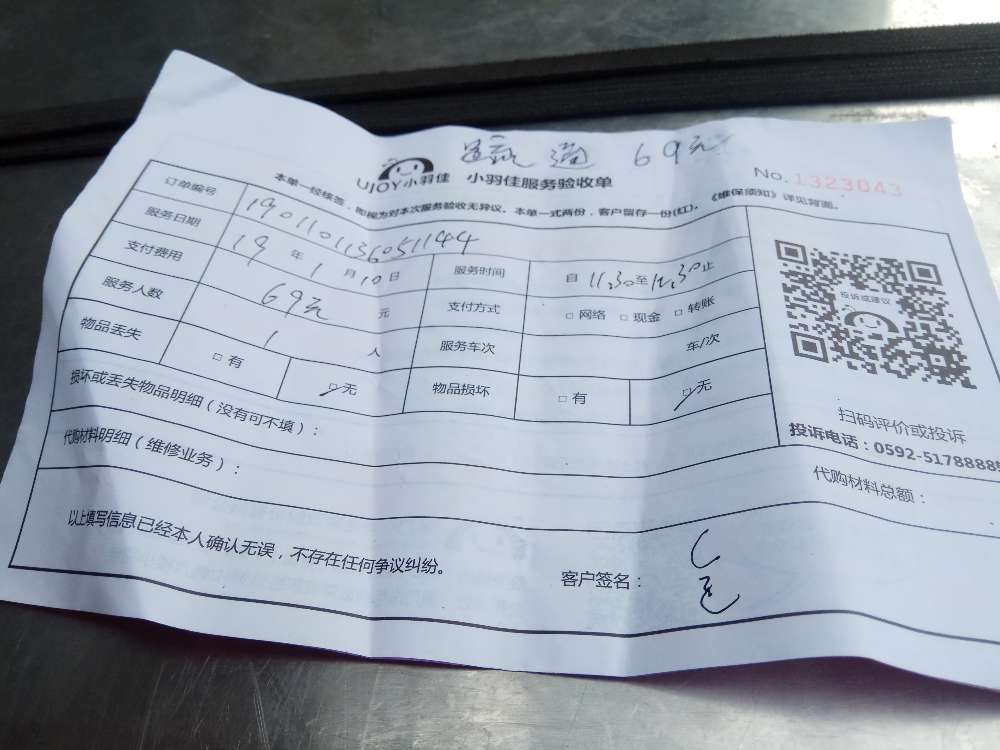 通 69元
UJOY小羽佳 小羽佳服务验收单
No. 1323043
本单一经核签，即视为对本次服务验收无异议。本单一式两份，客户留存一份(红)。《维保须知》详见背面。
订单编号 1901101136051144
服务日期 19 年 1 月 10 日 服务时间 自 11:30 至 12:30 止
支付费用 69元 元 支付方式 □ 网络 □ 现金 □ 转账
服务人数 1 人 服务车次 车/次
物品丢失 □ 有 □ 无 物品损坏 □ 有 □ 无
投诉或建议
扫码评价或投诉
投诉电话：0592-5178888
损坏或丢失物品明细（没有可不填）：
代购材料明细（维修业务）：
代购材料总额：
以上填写信息已经本人确认无误，不存在任何争议纠纷。
客户签名：